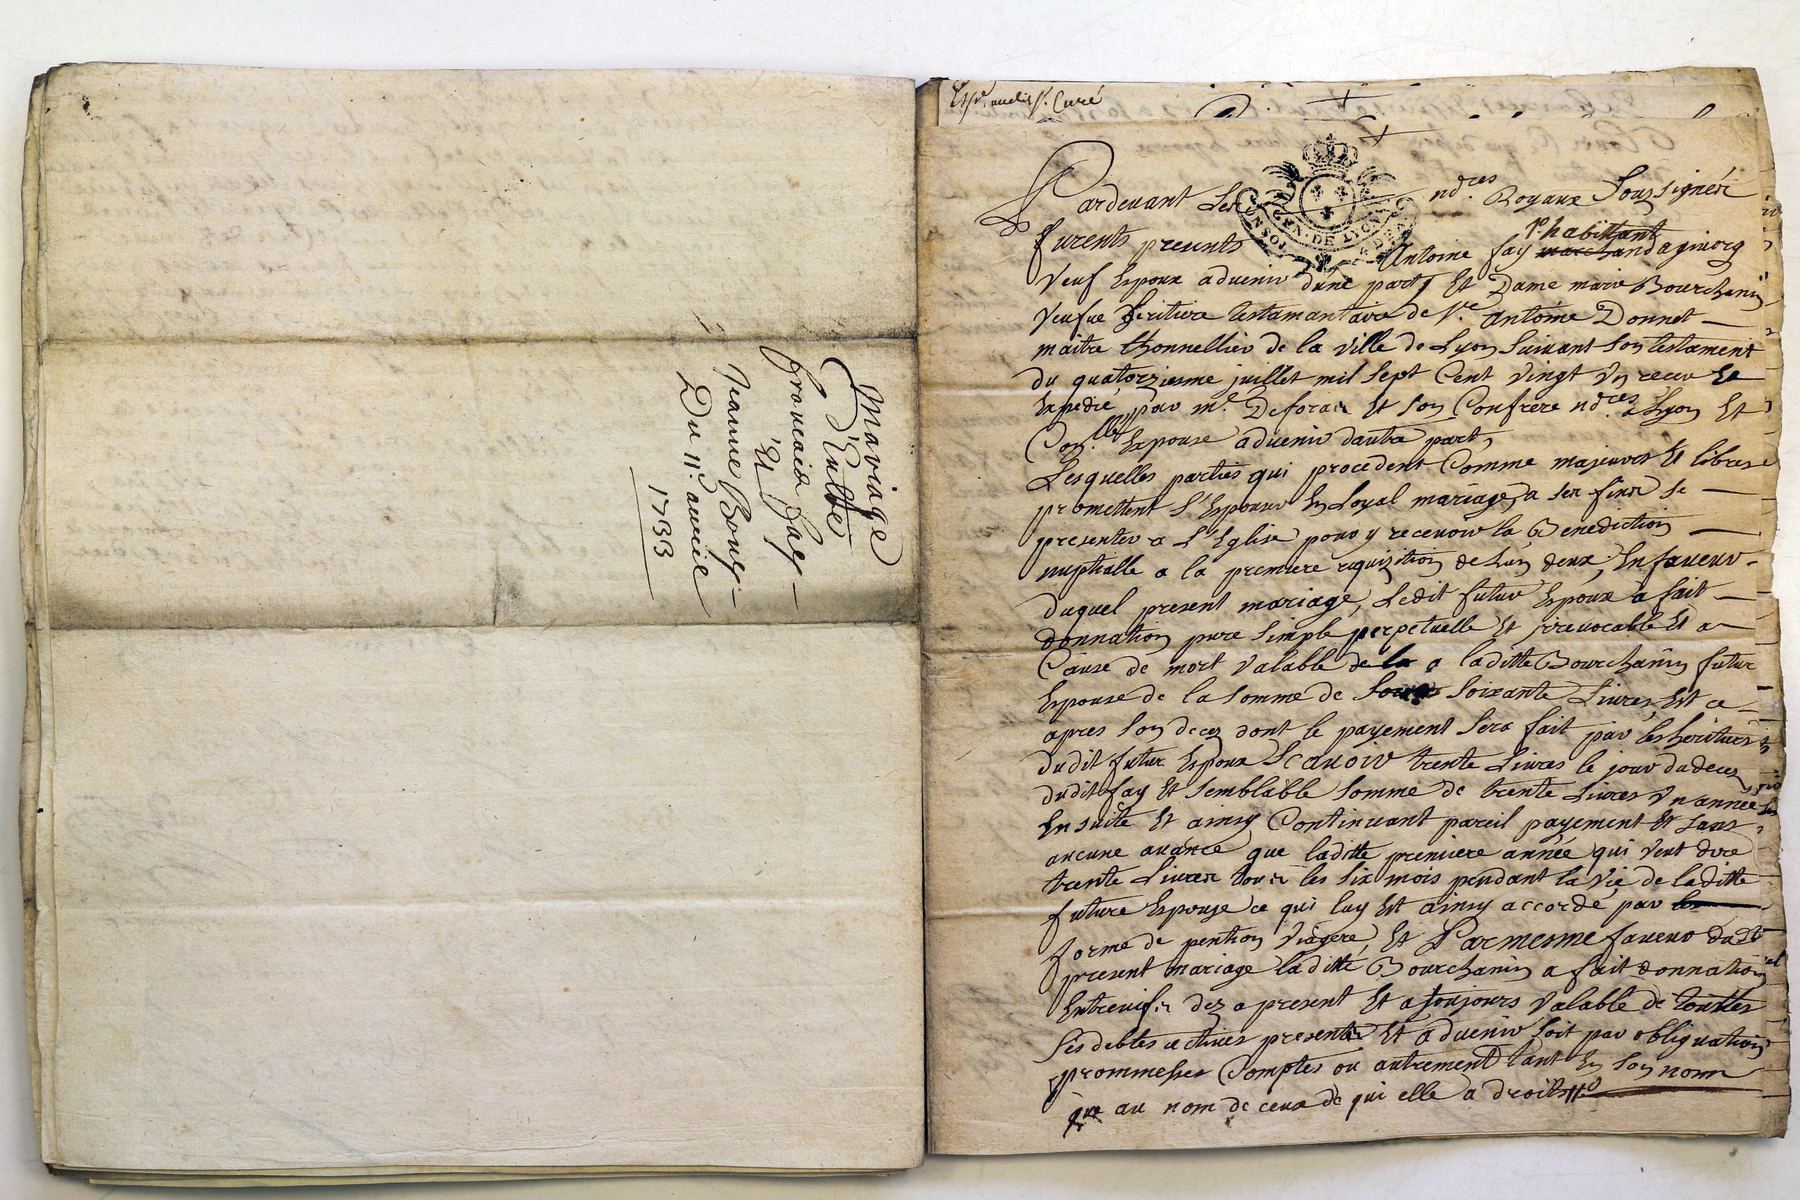 Mariage
D'Entre
françois Fay
Et
Jeanne Bouy
Du 11e. avril
1733
Curé
Pardevant Les nd.res Royaux Soussignéz
GEN. DE LYON
furents presents Antoine fay marchand
Sr habittant
Veuf Espoux aduenir dune part, Et Dame marie Bourchanin
Veufue heritiere testamantaire de Sr. antoine Donnet
maitre thonnellier de la Ville de Lyon Suivant Son testament
du quatorziesme juillet mil Sept Cent Vingt Un receu Et
Expedié par me. Et Son Confrere nd.res a Lyon Et
Espouse aduenir dautre part,
Lesquelles parties qui procedent Comme majeures Et libres
promettent S'Espouser En Loyal mariage, a Ses fins Se
presenter a L'Eglise pour y recevoir la Benediction
nuptialle a la premiere requisition de Lun deux, En faveur
duquel present mariage, Ledit futur Espoux a fait
donnation pure Simple perpetuelle Et irrevocable Et a
Cause de mort Valable de la a laditte Bourchanin futur
Espouse de la Somme de Soixante Livres, Et ce
apres Son deces dont le payement Sera fait par les heritiers
dudit futur Espoux Scavoir trente Livres le jour du deces
dudit fay Et Semblable Somme de trente Livres Un année
Ensuite Et ainsy Continuant pareil payement Et Sans
aucune avance que laditte premiere année qui Veut dire
trente Livres tous les Six mois pendant la Vie de laditte
future Espouse ce qui luy Est ainsy accordé par
forme de pention Viagere, Et Parmesme faveur dudt
present mariage laditte Bourchanin a fait donnation
Entreuifs dez a present Et a toujours Valable de touttes
Ses debtes actives presentes Et aduenir Soit par obliguation
prommesses Comptes ou autrement tant En Son nom
que au nom de ceux de qui elle a droits